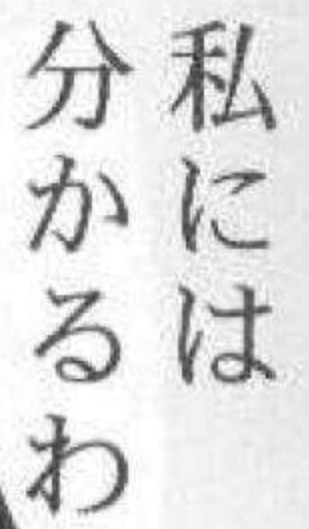 私には
分かるわ